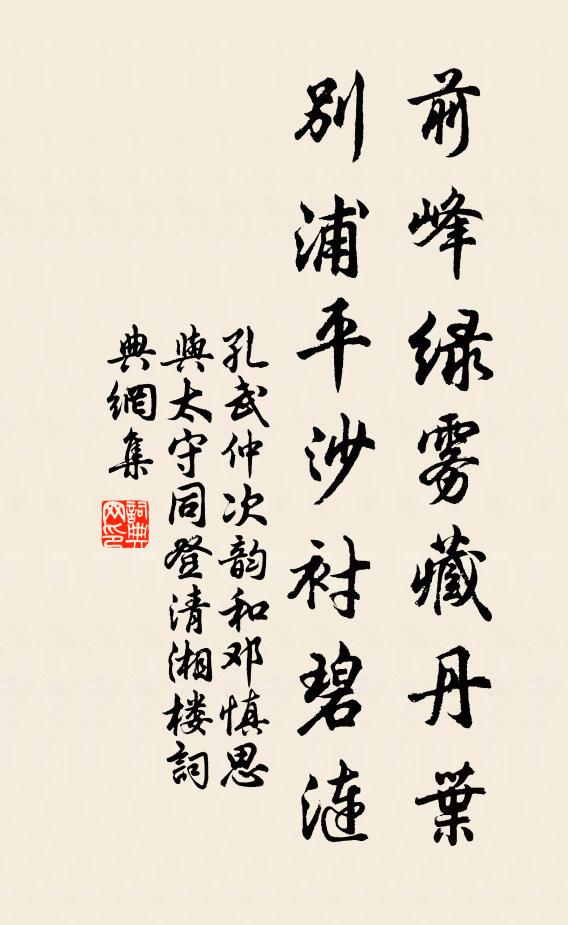 前峰绿雾藏丹葉
别浦平沙衬碧涟
孔武仲次韵和邓慎思
與太守同登清湘楼詞
典網集
詞典
网印